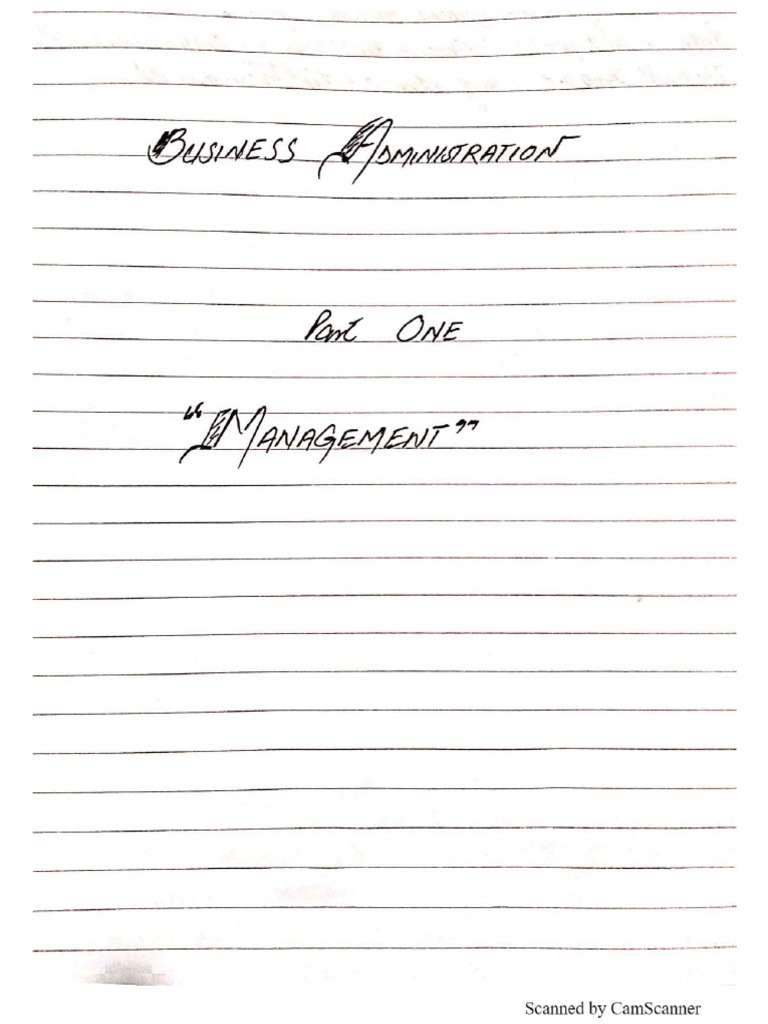 BUSINESS ADMINISTRATION
Part ONE
"MANAGEMENT"
Scanned by CamScanner